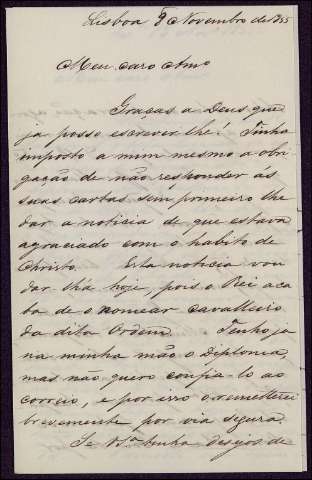 Lisboa 9 Novembro de 855
Meu caro Amo
Graças a Deus que
ja posso escrever lhe! Tinha
imposto a mim mesmo a obri
gação de não responder as
suas cartas sem primeiro lhe
dar a noticia de que estava
agraciado com o habito de
Christo. Esta noticia vou
dar lha hoje, pois o Rei aca
ba de o nomear cavalleiro
da dita Ordem. Tenho ja
na minha mão o Diploma,
mas não quero confia-lo ao
correio, e por isso o remetterei
brevemente por via segura.
Se Vsa. tinha desejos de